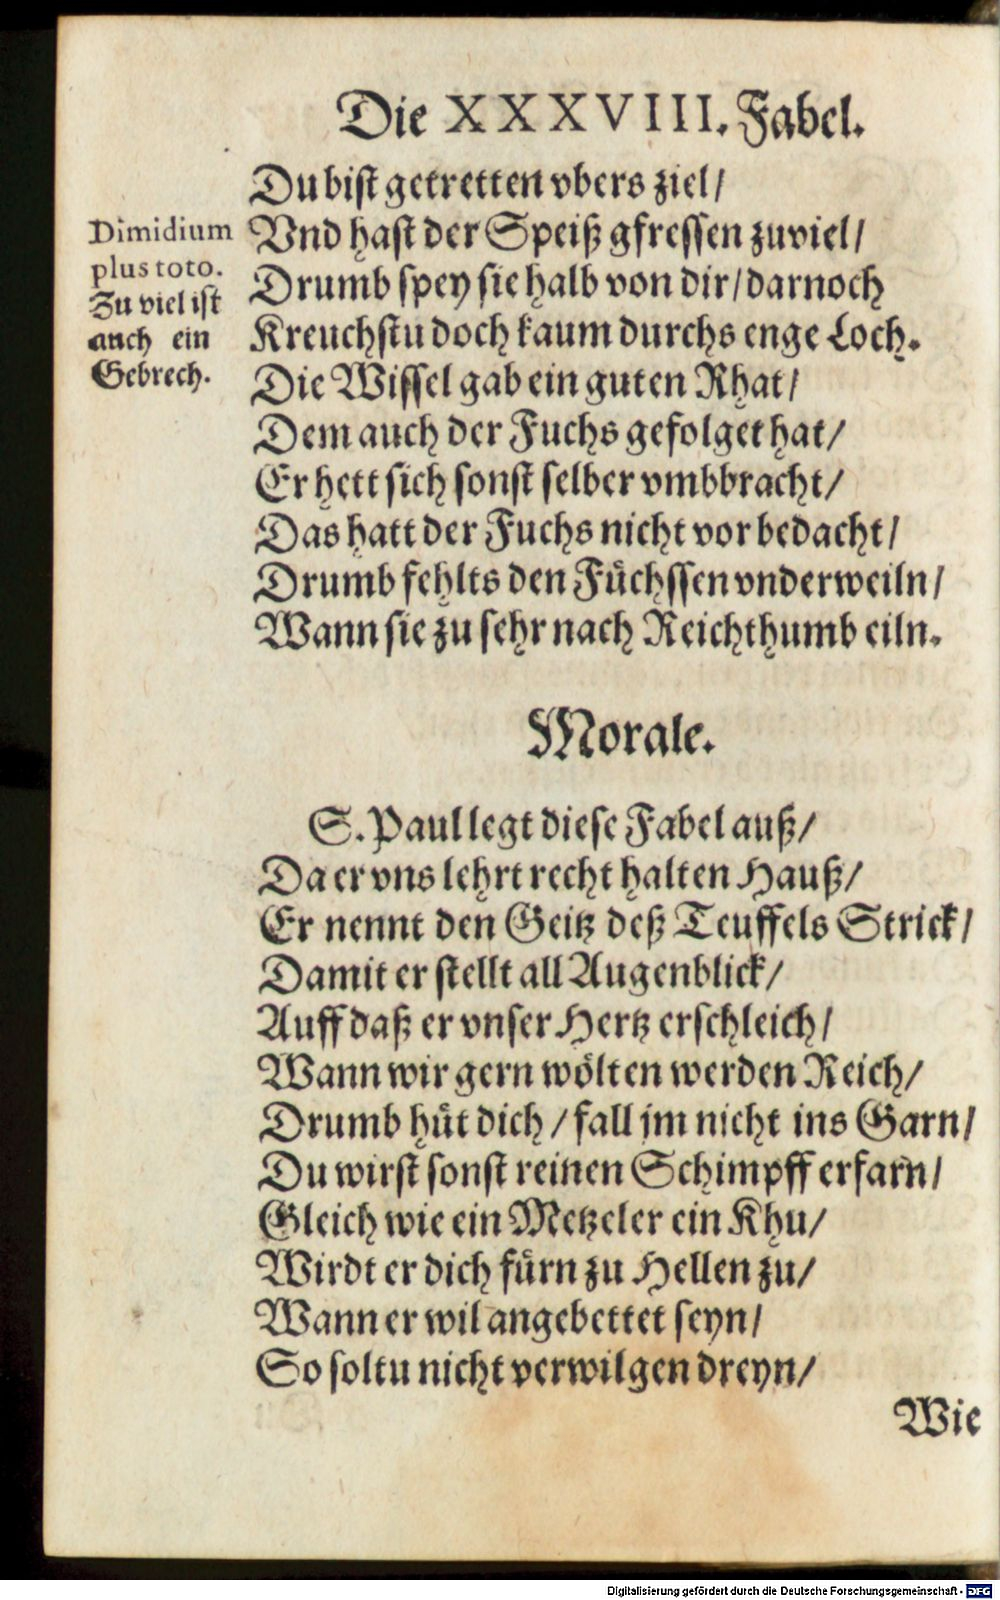 Die XXXVIII. Fabel.
Du bist getretten vbers ziel/
Vnd hast der Speiß gfressen zuviel/
Drumb spey sie halb von dir/darnoch
Kreuchstu doch kaum durchs enge Loch.
Die Wissel gab ein guten Rhat/
Dem auch der Fuchs gefolget hat/
Er hett sich sonst selber vmbbracht/
Das hatt der Fuchs nicht vor bedacht/
Drumb fehlts den Füchssen vnderweiln/
Wann sie zu sehr nach Reichthumb eiln.
Dimidium
plus toto.
Zu viel ist
auch ein
Gebrech.
Morale.
S. Paul legt diese Fabel auß/
Da er vns lehrt recht halten Hauß/
Er nennt den Geitz deß Teuffels Strick/
Damit er stellt all Augenblick/
Auff daß er vnser Hertz erschleich/
Wann wir gern wölten werden Reich/
Drumb hüt dich/fall jm nicht ins Garn/
Du wirst sonst reinen Schimpff erfarn/
Gleich wie ein Metzeler ein Khu/
Wirdt er dich fürn zu Hellen zu/
Wann er wil angebettet seyn/
So soltu nicht verwilgen dreyn/
Wie
Digitalisierung gefördert durch die Deutsche Forschungsgemeinschaft - DFG